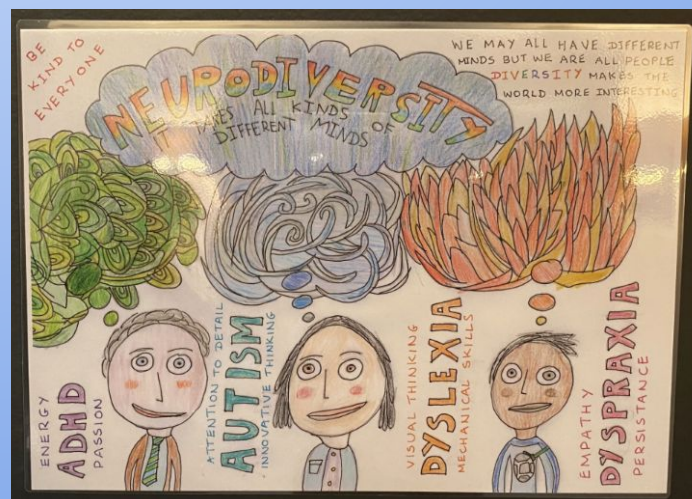 BE
KIND TO
EVERYONE
NEURODIVERSITY
IT TAKES ALL KINDS OF
DIFFERENT MINDS
WE MAY ALL HAVE DIFFERENT
MINDS BUT WE ARE ALL PEOPLE
DIVERSITY MAKES THE
WORLD MORE INTERESTING
ENERGY
ADHD
PASSION
ATTENTION TO DETAIL
AUTISM
INNOVATIVE THINKING
VISUAL THINKING
DYSLEXIA
MECHANICAL SKILLS
EMPATHY
DYSPRAXIA
PERSISTANCE